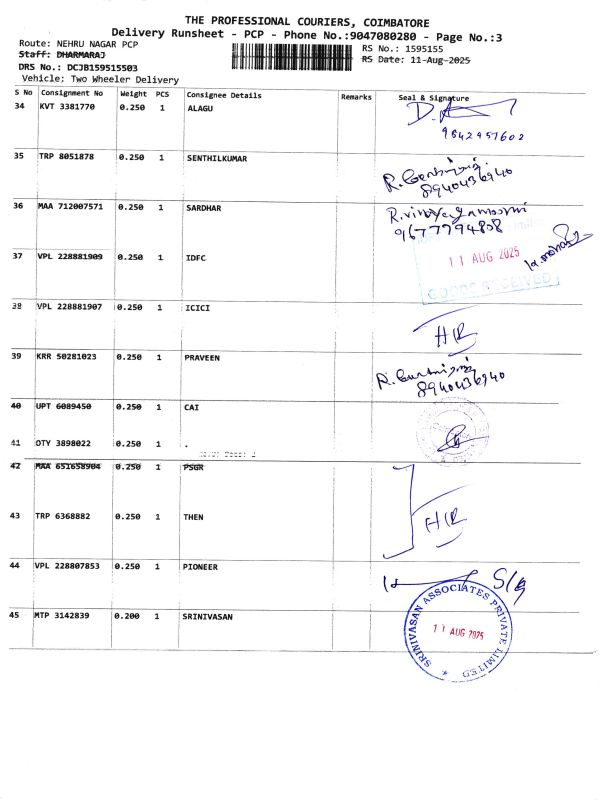 THE PROFESSIONAL COURIERS, COIMBATORE
Delivery Runsheet - PCP - Phone No.:9047080280 - Page No.:3
Route: NEHRU NAGAR PCP
RS No.: 1595155
Staff: DHARMARAJ
RS Date: 11-Aug-2025
DRS No.: DCJB159515503
Vehicle: Two Wheeler Delivery
S No Consignment No Weight PCS Consignee Details Remarks Seal & Signature
34 KVT 3381770 0.250 1 ALAGU
9842957602
35 TRP 8051878 0.250 1 SENTHILKUMAR
8940436940
36 MAA 712007571 0.250 1 SARDHAR
R.vinayagamoorthi
9677794808
37 VPL 228881909 0.250 1 IDFC
11 AUG 2025
GOODS RECEIVED
38 VPL 228881907 0.250 1 ICICI
39 KRR 50281023 0.250 1 PRAVEEN
8940436940
40 UPT 6089450 0.250 1 CAI
41 OTY 3898022 0.250 1 .
42 MAA 651658904 0.250 1 PSGR
43 TRP 6368882 0.250 1 THEN
44 VPL 228807853 0.250 1 PIONEER
45 MTP 3142839 0.200 1 SRINIVASAN
SRINIVASAN ASSOCIATES PRIVATE LIMITED
11 AUG 2025